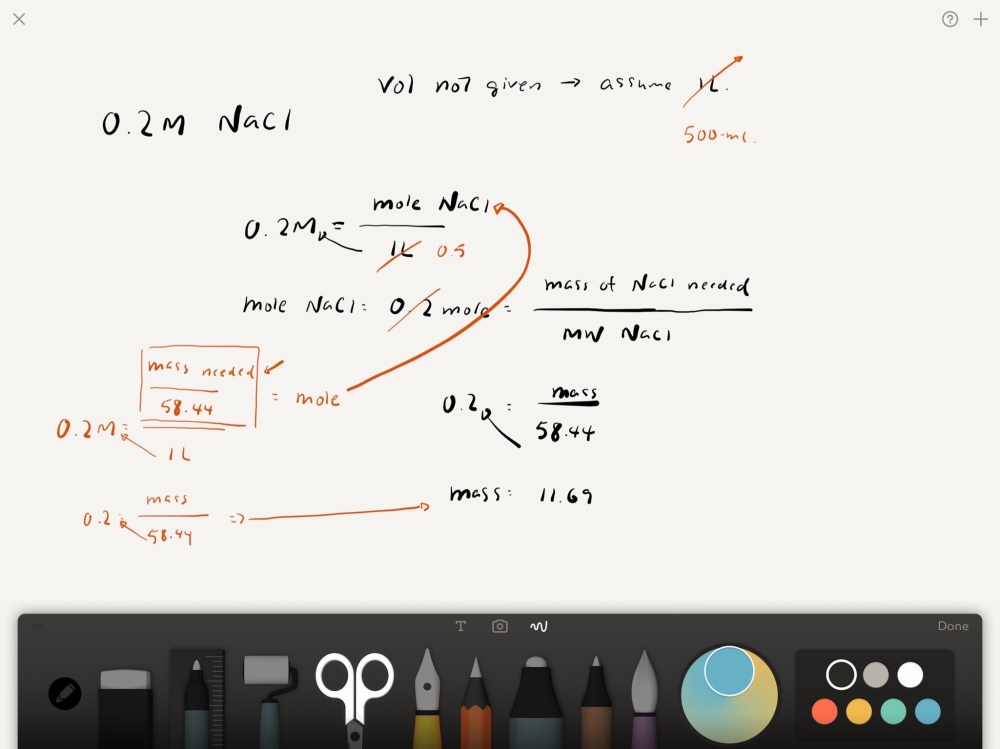 Vol not given → assume 1L.
500 ml.
0.2M NaCl
0.2M = mole NaCl
1L 0.5
mole NaCl = 0.2 mole = mass of NaCl needed
MW NaCl
mass needed
58.44
= mole
0.2M =
1L
0.2 = mass
58.44
mass: 11.69
0.2 = mass
58.44
⇒
T
Done